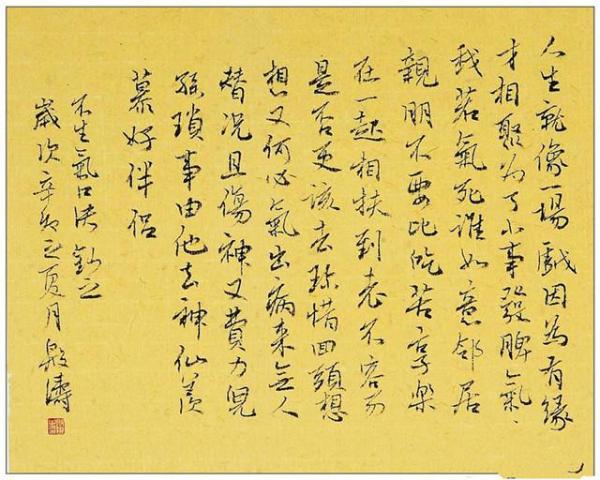 人生就像一場戲因為有緣
才相聚為了小事發脾氣、
我若氣死誰如意鄰居
親朋不要比吃苦享樂
在一起相扶到老不容易
是否更該去珍惜回頭想
想又何必氣出病來无人
替況且傷神又費力兒
孫瑣事由他去神仙羨
慕好伴侶
不生氣口決
歲次辛卯之夏月